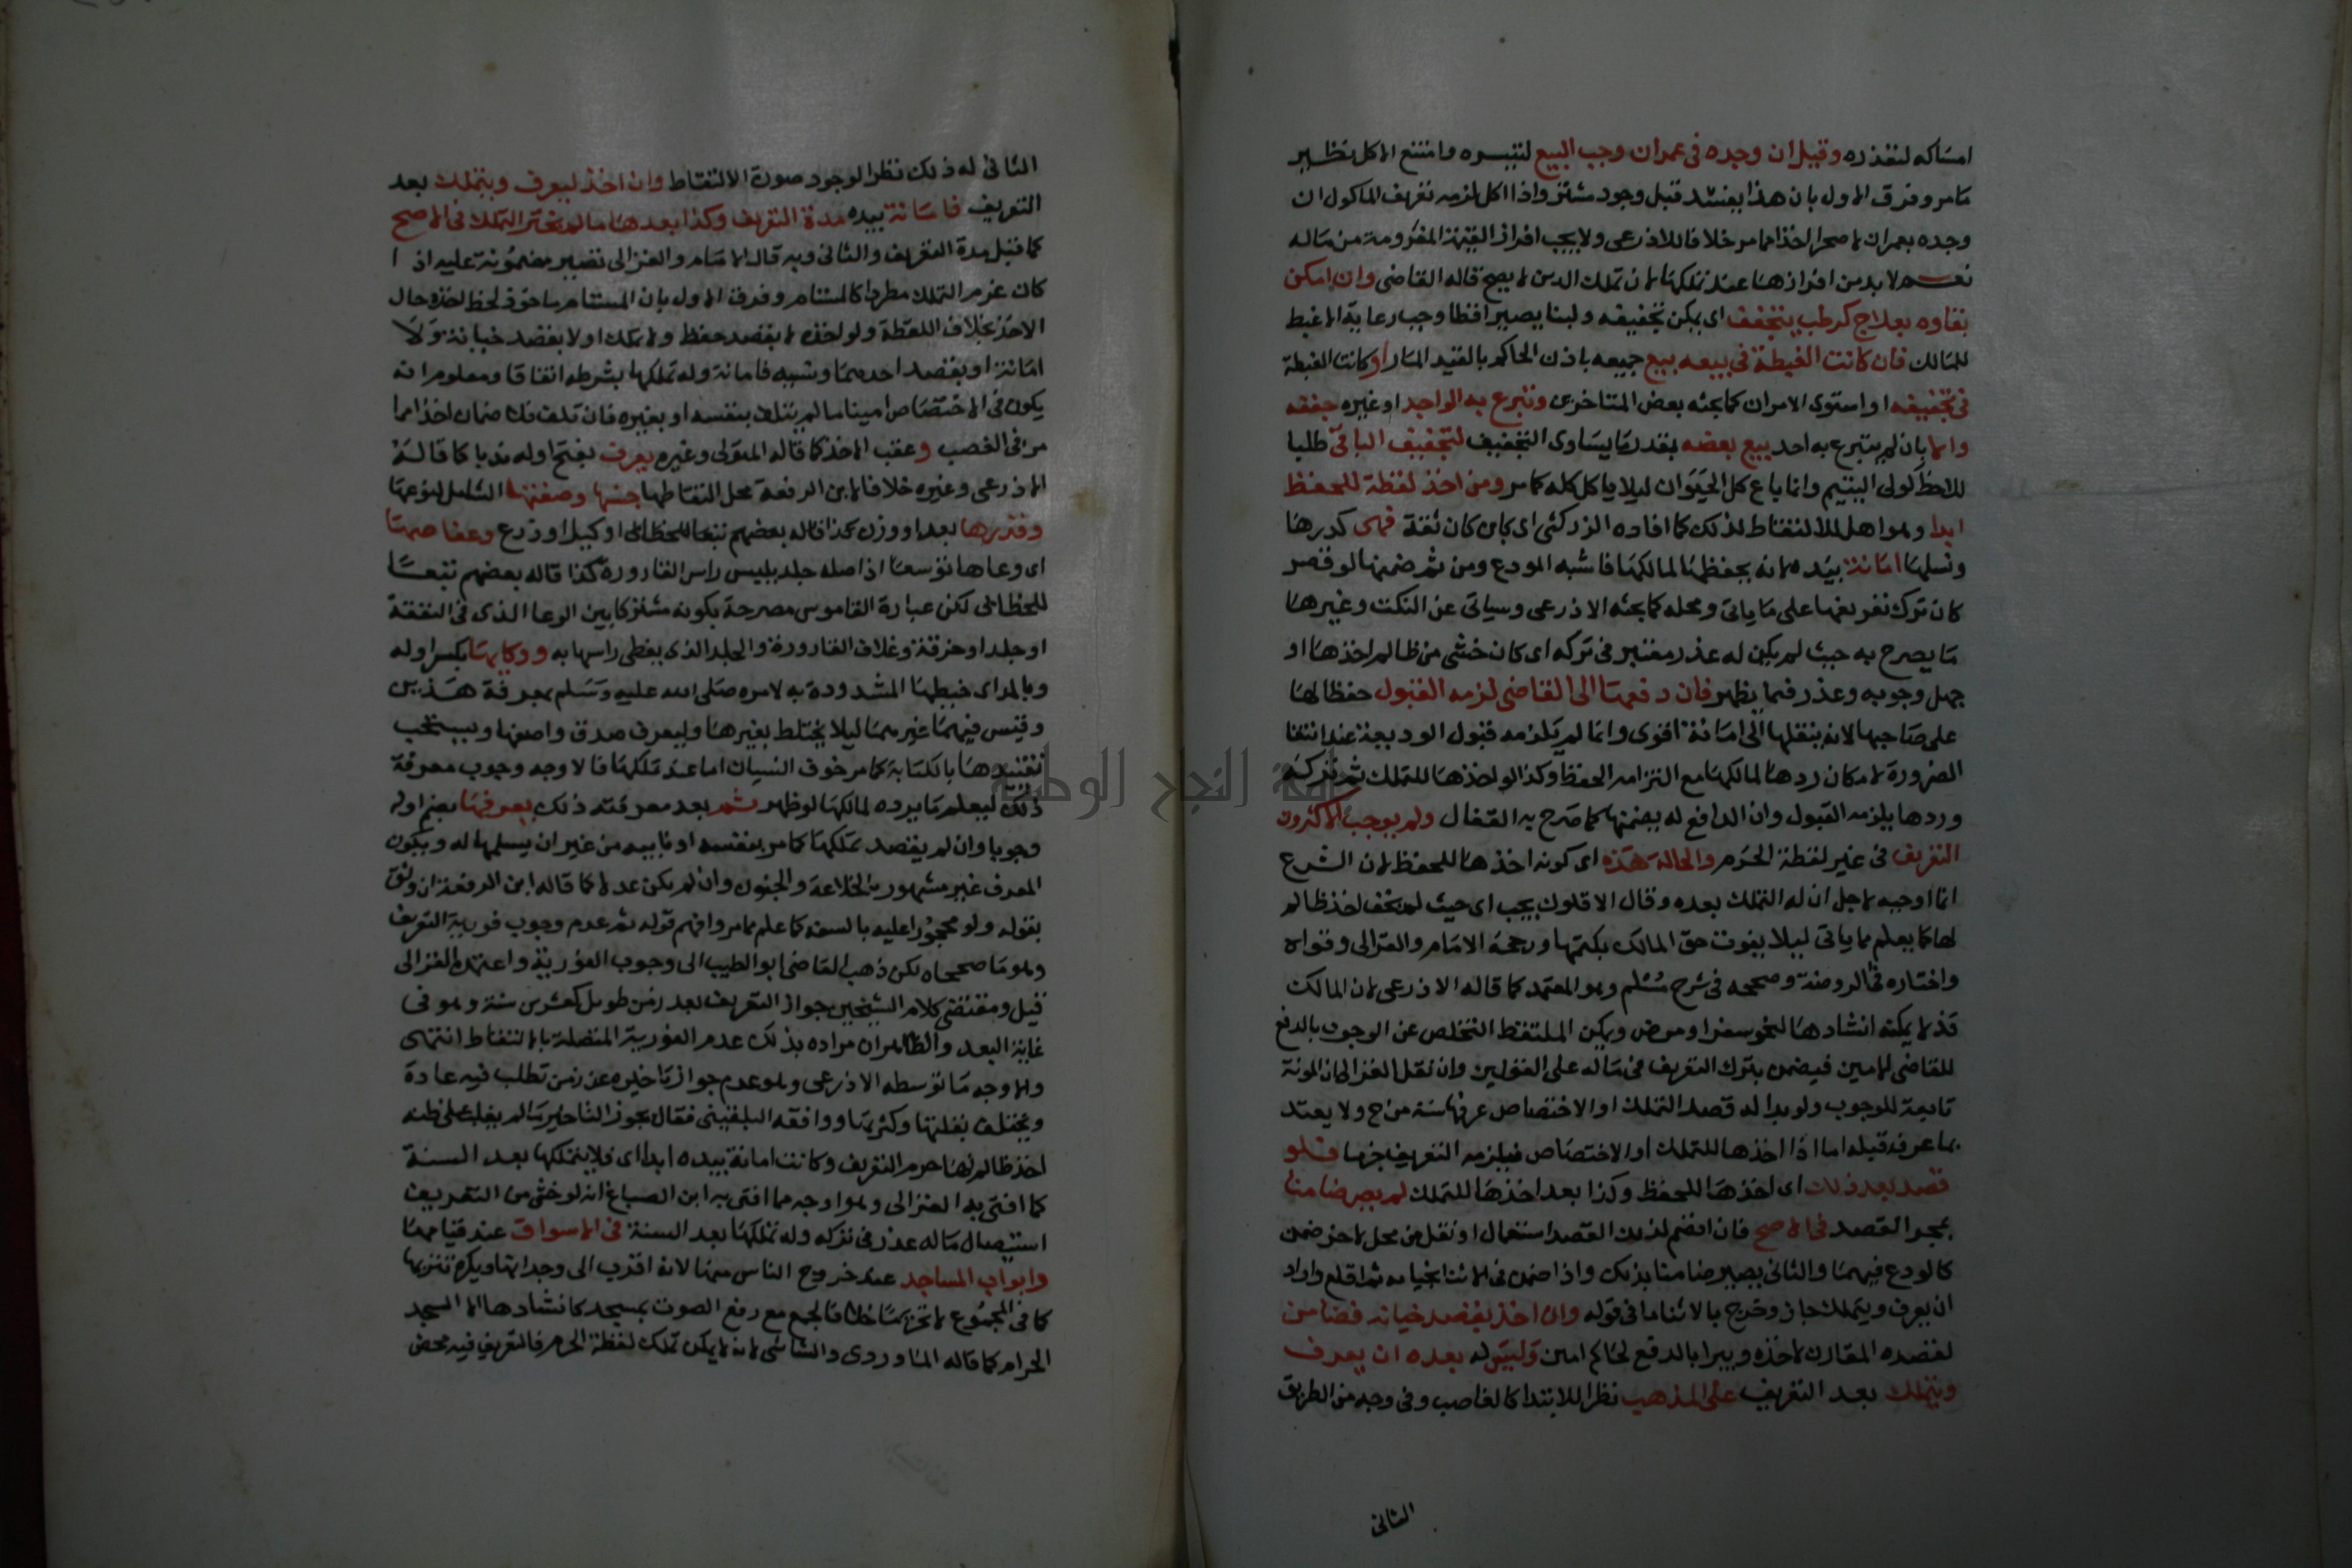 امساكه لتعذره وقيل ان وجده فى عمران وجب البيع لتيسره وامتنع الاكل نظير
مامر وفرق الاول بان هذا يفسد قبل وجود مشتر واذا اكل لزمه تعريف الماكول ان
وجده بعمران لا صحرا اخذا مما مر خلافا للاذرعى ولا يجب افراز القيمة المغرومة من ماله
نعم لا بد من افرازها عند تملكها لان تملك الدين لا يصح قاله القاضى وان امكن
بقاوه بعلاج كرطب يتجفف اى يمكن تجفيفه ولبنا يصير اقطا وجب رعاية الاغبط
للمالك فان كانت الغبطة فى بيعه بيع جميعه باذن الحاكم بالقيد المار او كانت الغبطة
فى تجفيفه او استوى الامران كما بحثه بعض المتاخرين وتبرع به الواجد او غيره جففه
والا بان لم يتبرع به احد بيع بعضه بقدر ما يساوى التجفيف لتجفيف الباقى طلبا
للاحظ كولى اليتيم وانما باع كل الحيوان ليلا ياكل كله كما مر ومن اخذ لقطة للحفظ
ابدا وهو اهل للالتقاط لذلك كما افاده الزركشى اى بان كان ثقة فهى كدرها
ونسلها امانة بيده لانه يحفظها لمالكها فاشبه المودع ومن ثم ضمنها لو قصر
كان ترك تعريفها على ما ياتى ومحله كما بحثه الاذرعى وسياتى عن النكت وغيرها
ما يصرح به حيث لم يكن له عذر معتبر فى تركه اى كان خشى من ظالم اخذها او
جهل وجوبه وعذر فيما يظهر فان دفعها الى القاضى لزمه القبول حفظا لها
على صاحبها لانه ينقلها الى امانة اقوى وانما لم يلزمه قبول الوديعة عند انتفا
الضرورة لامكان ردها لمالكها مع التزامه الحفظ وكذا لو اخذها للتملك ثم تركه
وردها يلزمه القبول وان الدافع له يضمنها كما صرح به القفال ولم يوجب الاكثرون
التعريف فى غير لقطة الحرم والحالة هذه اى كونه اخذها للحفظ لان الشرع
انما اوجبه لاجل ان له التملك بعده وقال الاقلون يجب اى حيث لم يخف اخذ ظالم
لها كما يعلم مما ياتى ليلا يفوت حق المالك بكتمها ورجحه الامام والغزالى وقواه
واختاره فى الروضة وصححه فى شرح مسلم وهو المعتمد كما قاله الاذرعى لان المالك
قد لا يمكنه انشادها لنحو سفر او مرض ويمكن الملتقط التخلص عن الوجوب بالدفع
للقاضى الامين فيضمن بترك التعريف فى ماله على القولين وان نقل الغزالى ان المونة
تابعة للوجوب ولو بدا له قصد التملك او الاختصاص عرفها سنة من ح ولا يعتد
بما عرفه قبله اما اذا اخذها للتملك او الاختصاص فيلزمه التعريف جزما فلو
قصد بعد ذلك اى اخذها للحفظ وكذا بعد اخذها للتملك لم يصر ضامنا
بمجرد القصد فى الاصح فان انضم لذلك القصد استعمال او نقل من محل لاخر ضمن
كالمودع فيهما والثانى يصير ضامنا بذلك واذا ضمن فى الاثنا بخيانه ثم اقلع واراد
ان يعرف ويتملك جاز وخرج بالاثنا ما فى قوله وان اخذ بقصد خيانه فضامن
لقصده المقارن لاخذه ويبرا بالدفع لحاكم امين وليس له بعده ان يعرف
ويتملك بعد التعريف على المذهب نظرا للابتدا كالغاصب وفى وجه من الطريق
الثانى
الثانى له ذلك نظرا لوجود صورة الالتقاط وان اخذ ليعرف ويتملك بعد
التعريف فامانة بيده مدة التعريف وكذا بعدها ما لم يختر التملك فى الاصح
كما قبل مدة التعريف والثانى وبه قال الامام والغزالى تصير مضمونة عليه اذا
كان عزم التملك مطردا كالمستام وفرق الاول بان المستام ماخوذ لحظ اخذه حال
الاخذ بخلاف اللقطة ولو اخذه لا بقصد حفظ ولا تملك او لا بقصد خيانة ولا
امانة او بقصد احدهما ونسيه فامانة وله تملكها بشرطه اتفاقا ومعلوم انه
يكون فى الاختصاص امينا ما لم يتلف بنفسه او بغيره فان تلف فلا ضمان اخذا مما
مر فى الغصب وعقب الاخذ كما قاله المتولى وغيره يعرف بفتح اوله ندبا كما قاله
الاذرعى وغيره خلافا لابن الرفعة محل التقاطها جنسها وصفتها الشامل لنوعها
وقدرها بعد او وزن كذا قاله بعضهم تبعا للخطابى او كيل او ذرع وعفاصها
اى وعاها توسعا اذ اصله جلد يلبس راس القارورة كذا قاله بعضهم تبعا
للخطابى لكن عبارة القاموس مصرحة بكونه مشتركا بين الوعا الذى فى النفقة
او جلد او خرقة وغلاف القارورة والجلد الذى يغطى راسها به ووكايها بكسر اوله
وبالمد اى خيطها المشدودة به لامره صلى الله عليه وسلم بمعرفة هذين
وقيس فيهما غيرهما ليلا يختلط بغيرها وليعرف صدق واصفها ويستحب
تقييدها بالكتابة كما مر خوف النسيان اما عند تملكها فالاوجه وجوب معرفة
ذلك ليعلم ما يرده لمالكها لو ظهر ثم بعد معرفته ذلك يعرفها بضم اوله
وجوبا وان لم يقصد تملكها كما مر بنفسه او نايبه من غير ان يسلمها له ويكون
المعرف غير مشهور بالخلاعة والجنون وان لم يكن عدلا كما قاله ابن الرفعة ان وثق
بقوله ولو محجورا عليه بالسفه كما علم مما مر وافهم قوله ثم عدم وجوب فورية التعريف
وهو ما صححاه لكن ذهب القاضى ابو الطيب الى وجوب الفورية واعتمده الغزالى
قيل ومقتضى كلام الشيخين جواز التعريف بعد زمن طويل كعشرين سنة وهو فى
غاية البعد والظاهر ان مراده بذلك عدم الفورية المتصلة بالالتقاط انتهى
والاوجه ما توسطه الاذرعى وهو عدم جواز تاخيره عن زمن تطلب فيه عادة
ويختلف بقلتها وكثرتها ووافقه البلقينى فقال يجوز التاخير ما لم يغلب على ظنه
اخذ ظالم لها حرم التعريف وكانت امانة بيده ابدا اى فلا يتملكها بعد السنة
كما افتى به الغزالى وهو اوجه مما افتى به ابن الصباغ انه لو خشى من التعريف
استيصال ماله عذر فى تركه وله تملكها بعد السنة فى الاسواق عند قيامها
وابواب المساجد عند خروج الناس منها لانه اقرب الى وجدانها ويكره تنزيها
كما فى المجموع لا تحريما خلافا لجمع مع رفع الصوت بمسجد كانشادها الا المسجد
الحرام كما قاله الماوردى والشاشى لانه لا يمكن تملك لقطة الحرم فالتعريف فيه محض
جامعة النجاح الوطنية